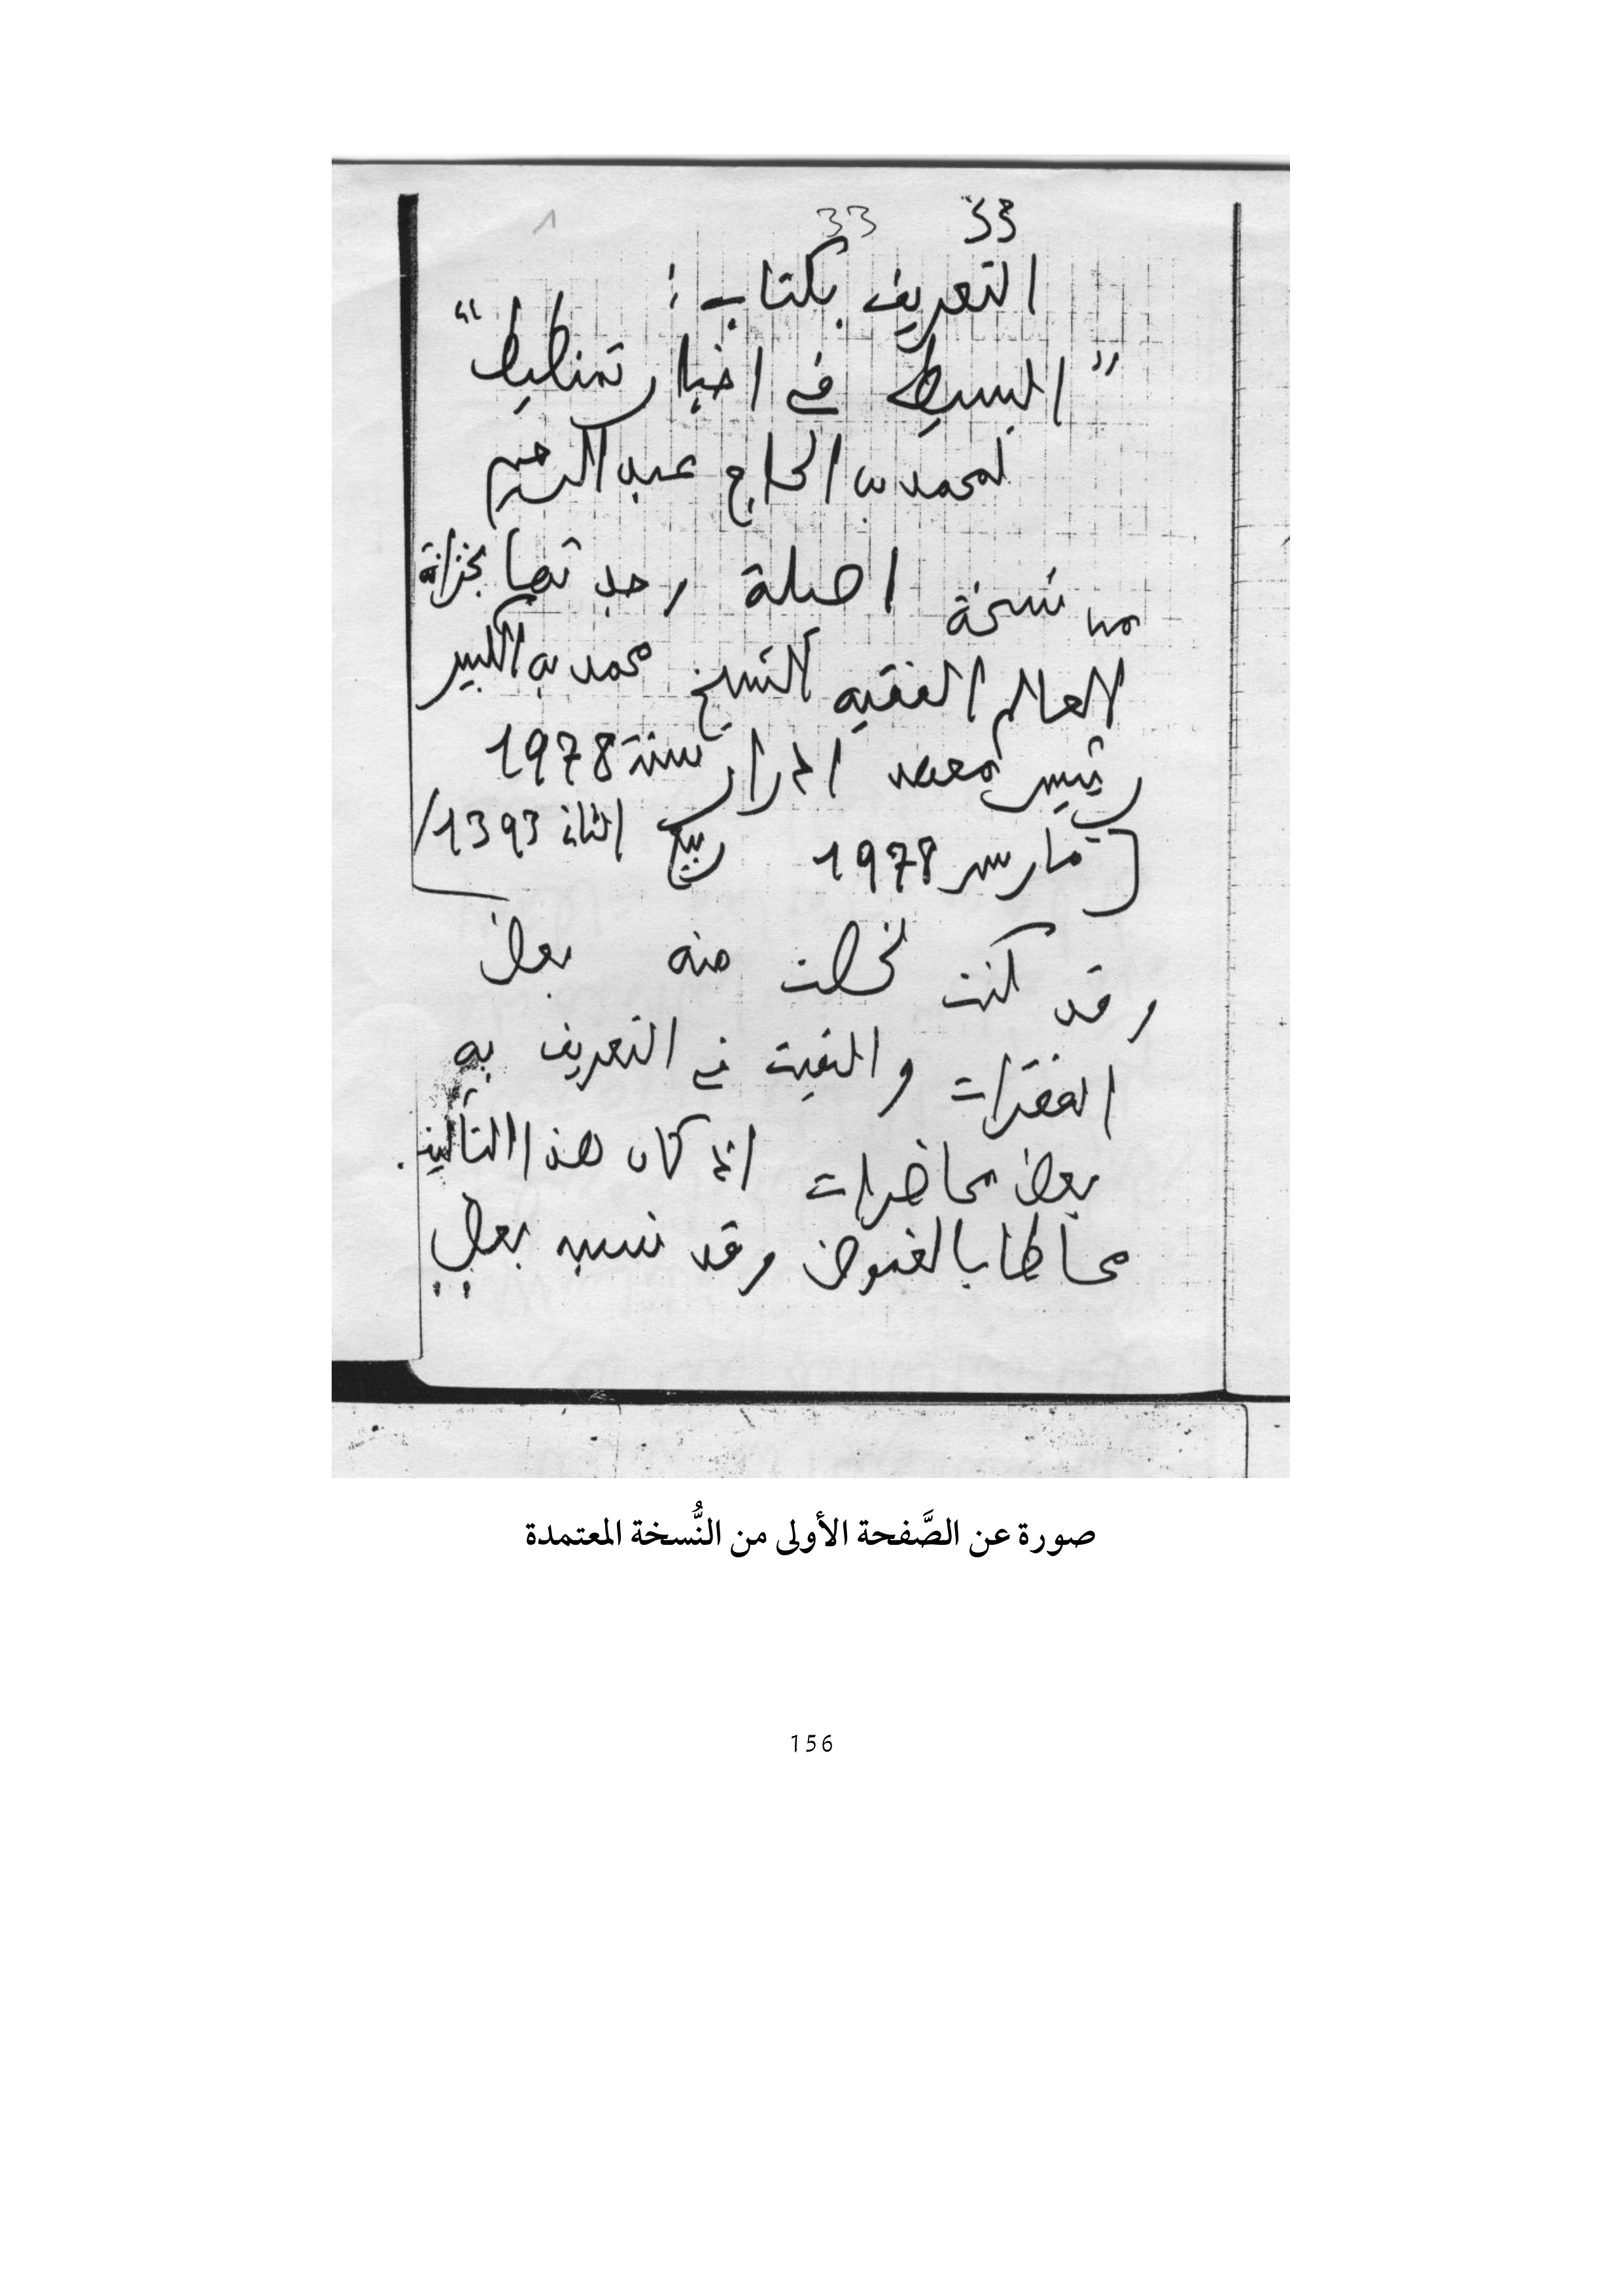 33 33
التعريف بكتاب :
"البسيط في اخبار تمنطيط"
لمحمد بن الحاج عبد الرحيم
من نسخة اصلية وجدتها بخزانة
العالم الفقيه الشيخ محمد بن الكبير
رئيس معهد ادرار سنة 1978
[مارس 1978 ربيع الثاني 1393/
وقد كنت لخصت منه بعض
الفقرات والقيت في التعريف به
بعض محاضرات انما كان هذا التأليف
محاطا بالغموض وقد نسبه بعض
صورة عن الصَّفحة الأولى من النُّسخة المعتمدة
156